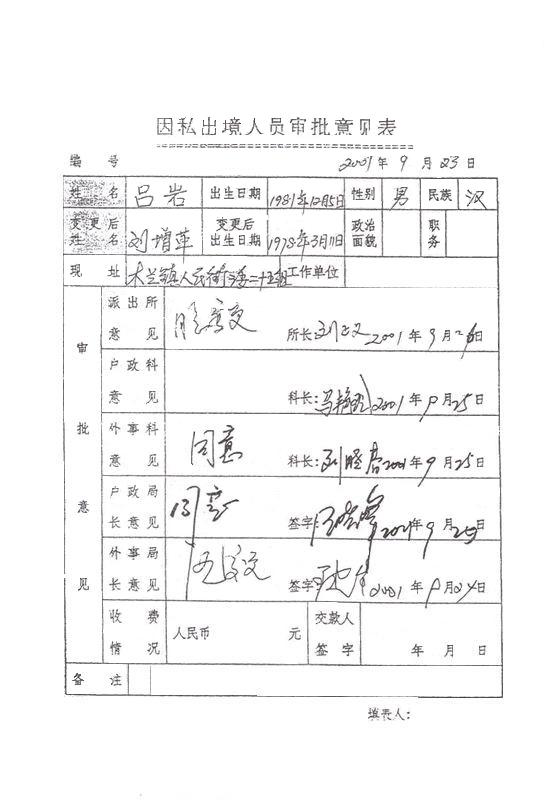 因私出境人员审批意见表
编 号 2001年 9 月 23 日
姓 名 吕岩 出生日期 1981年12月5日 性别 男 民族 汉
变更后姓名 刘增革 变更后出生日期 1978年3月11日 政治面貌 职务
现 址 木兰镇人民街 二十五组 工作单位
审批意见
派出所意见 所长: 2001 年 9 月 日
户政科意见 科长: 2001 年 9 月 25 日
外事科意见 同意 科长: 刘 2001 年 9 月 25 日
户政局长意见 同意 签字: 2001 年 9 月 日
外事局长意见 签字: 2001 年 9 月 24 日
收费情况 人民币 元 交款人签字 年 月 日
备 注
填表人: